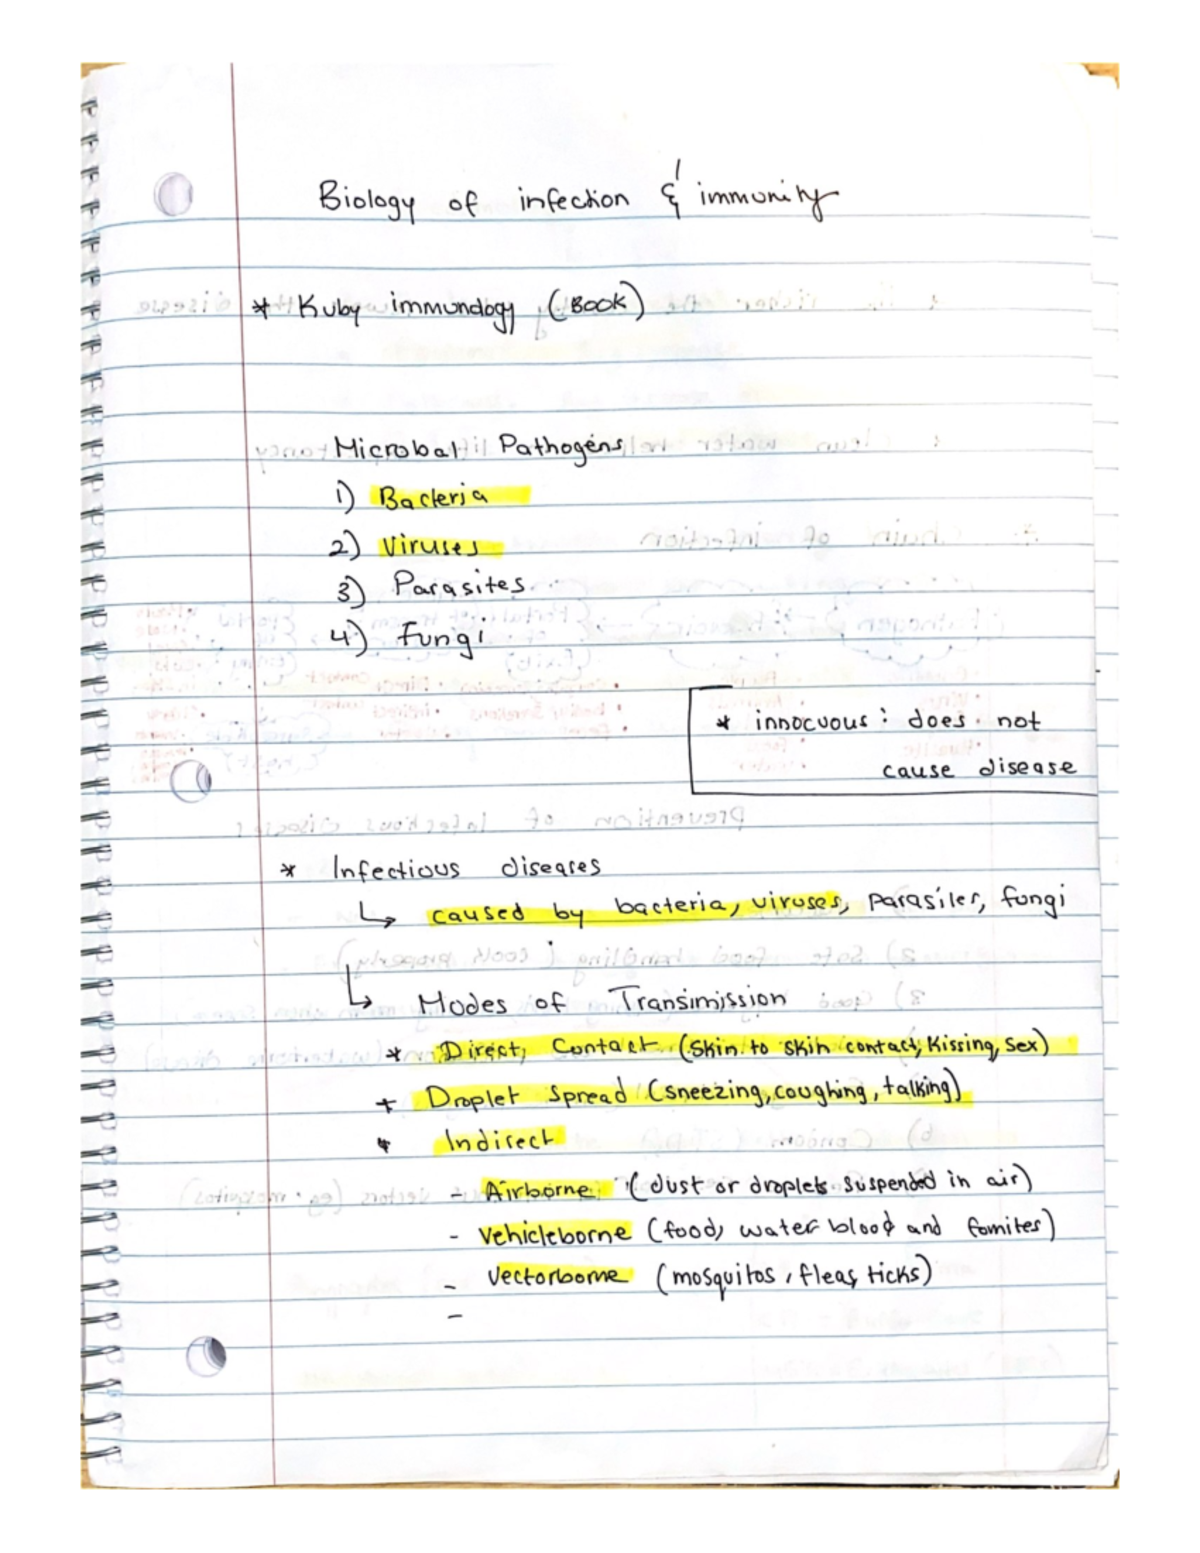 Biology of infection & immunity
* Kuby immunology (BOOK)
Microbal Pathogens
1) Bacteria
2) Viruses
3) Parasites
4) Fungi
* innocuous : does not
cause disease
* Infectious diseases
↳ caused by bacteria, viruses, parasites, fungi
↳ Modes of Transimission
* Direct, Contact (Skin to skin contact, Kissing, Sex)
* Droplet Spread (sneezing, coughing, talking)
* Indirect
- Airborne (dust or droplets suspended in air)
- Vehicleborne (food, water blood and fomites)
- Vectorborne (mosquitos, fleas, ticks)
-